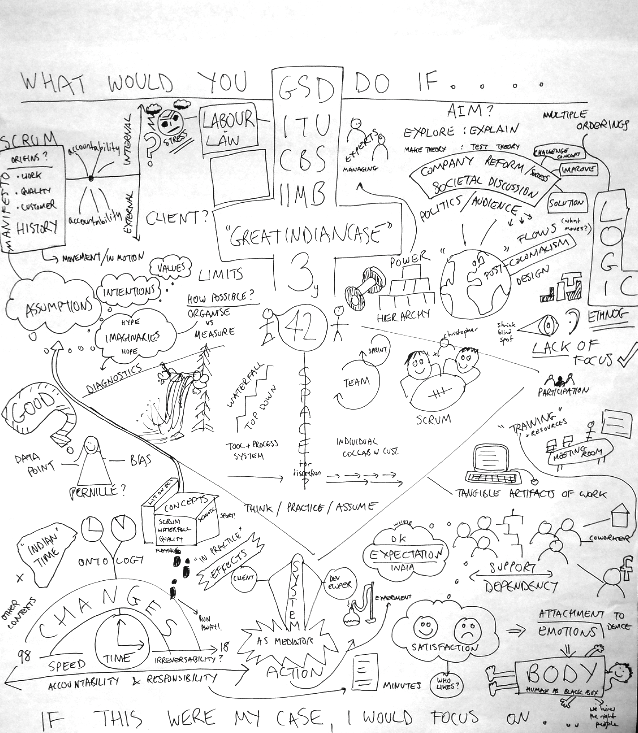 WHAT WOULD YOU DO IF.....
GSD
ITU
CBS
IIMB
"GREAT INDIAN CASE"
3y
42
SPACE
LABOUR LAW
STRESS
INTERNAL
EXTERNAL
accountability
accountability
MOVEMENT/IN MOTION
SCRUM
MANIFESTO
ORIGINS?
• WORK
• QUALITY
• CUSTOMER
HISTORY
CLIENT?
EXPERTS
MANAGING
AIM?
EXPLORE : EXPLAIN
MAKE THEORY : TEST THEORY
COMPANY REFORM/
SOCIETAL DISCUSSION
POLITICS/AUDIENCE
MULTIPLE ORDERINGS
IMPROVE
SOLUTION
LOGIC
FLOWS (what moves?)
POST COLONIALISM
DESIGN
ETHNOG
POWER
HIERARCHY
LACK OF FOCUS
ASSUMPTIONS
INTENTIONS
VALUES
HYPE
IMAGINARIES
HOPE
LIMITS
HOW POSSIBLE?
ORGANISE
vs
MEASURE
DIAGNOSTICS
WATERFALL
TOP DOWN
TOOL + PROCESS
SYSTEM
SPRINT
TEAM
INDIVIDUAL
COLLAB W CUST.
Christopher
SCRUM
blind spot
PARTICIPATION
"TRAINING"
• RESOURCES
MEETING ROOM
TANGIBLE ARTIFACTS OF WORK
GOOD
DATA POINT
BIAS
PERNILLE?
THINK / PRACTICE / ASSUME
CONCEPTS
SCRUM
WATERFALL
QUALITY
"IN PRACTICE"
EFFECTS
RUN AWAY!
"INDIAN" TIME
ONTOLOGY
OTHER CONTEXTS
CHANGES
98
18
SPEED
TIME
IRREVERSABILITY?
ACCOUNTABILITY & RESPONSIBILITY
CLIENT
SYSTEM
AS MEDIATORS
ACTION
DEVELOPER
EXPERIMENT
DK
EXPECTATION
INDIA
SATISFACTION
WHO LIKES?
MINUTES
COWORKER
SUPPORT
DEPENDENCY
ATTACHMENT TO DEVICE
EMOTIONS
BODY
HUMAN AS BLACK BOX
we hired the right people
IF THIS WERE MY CASE, I WOULD FOCUS ON ....